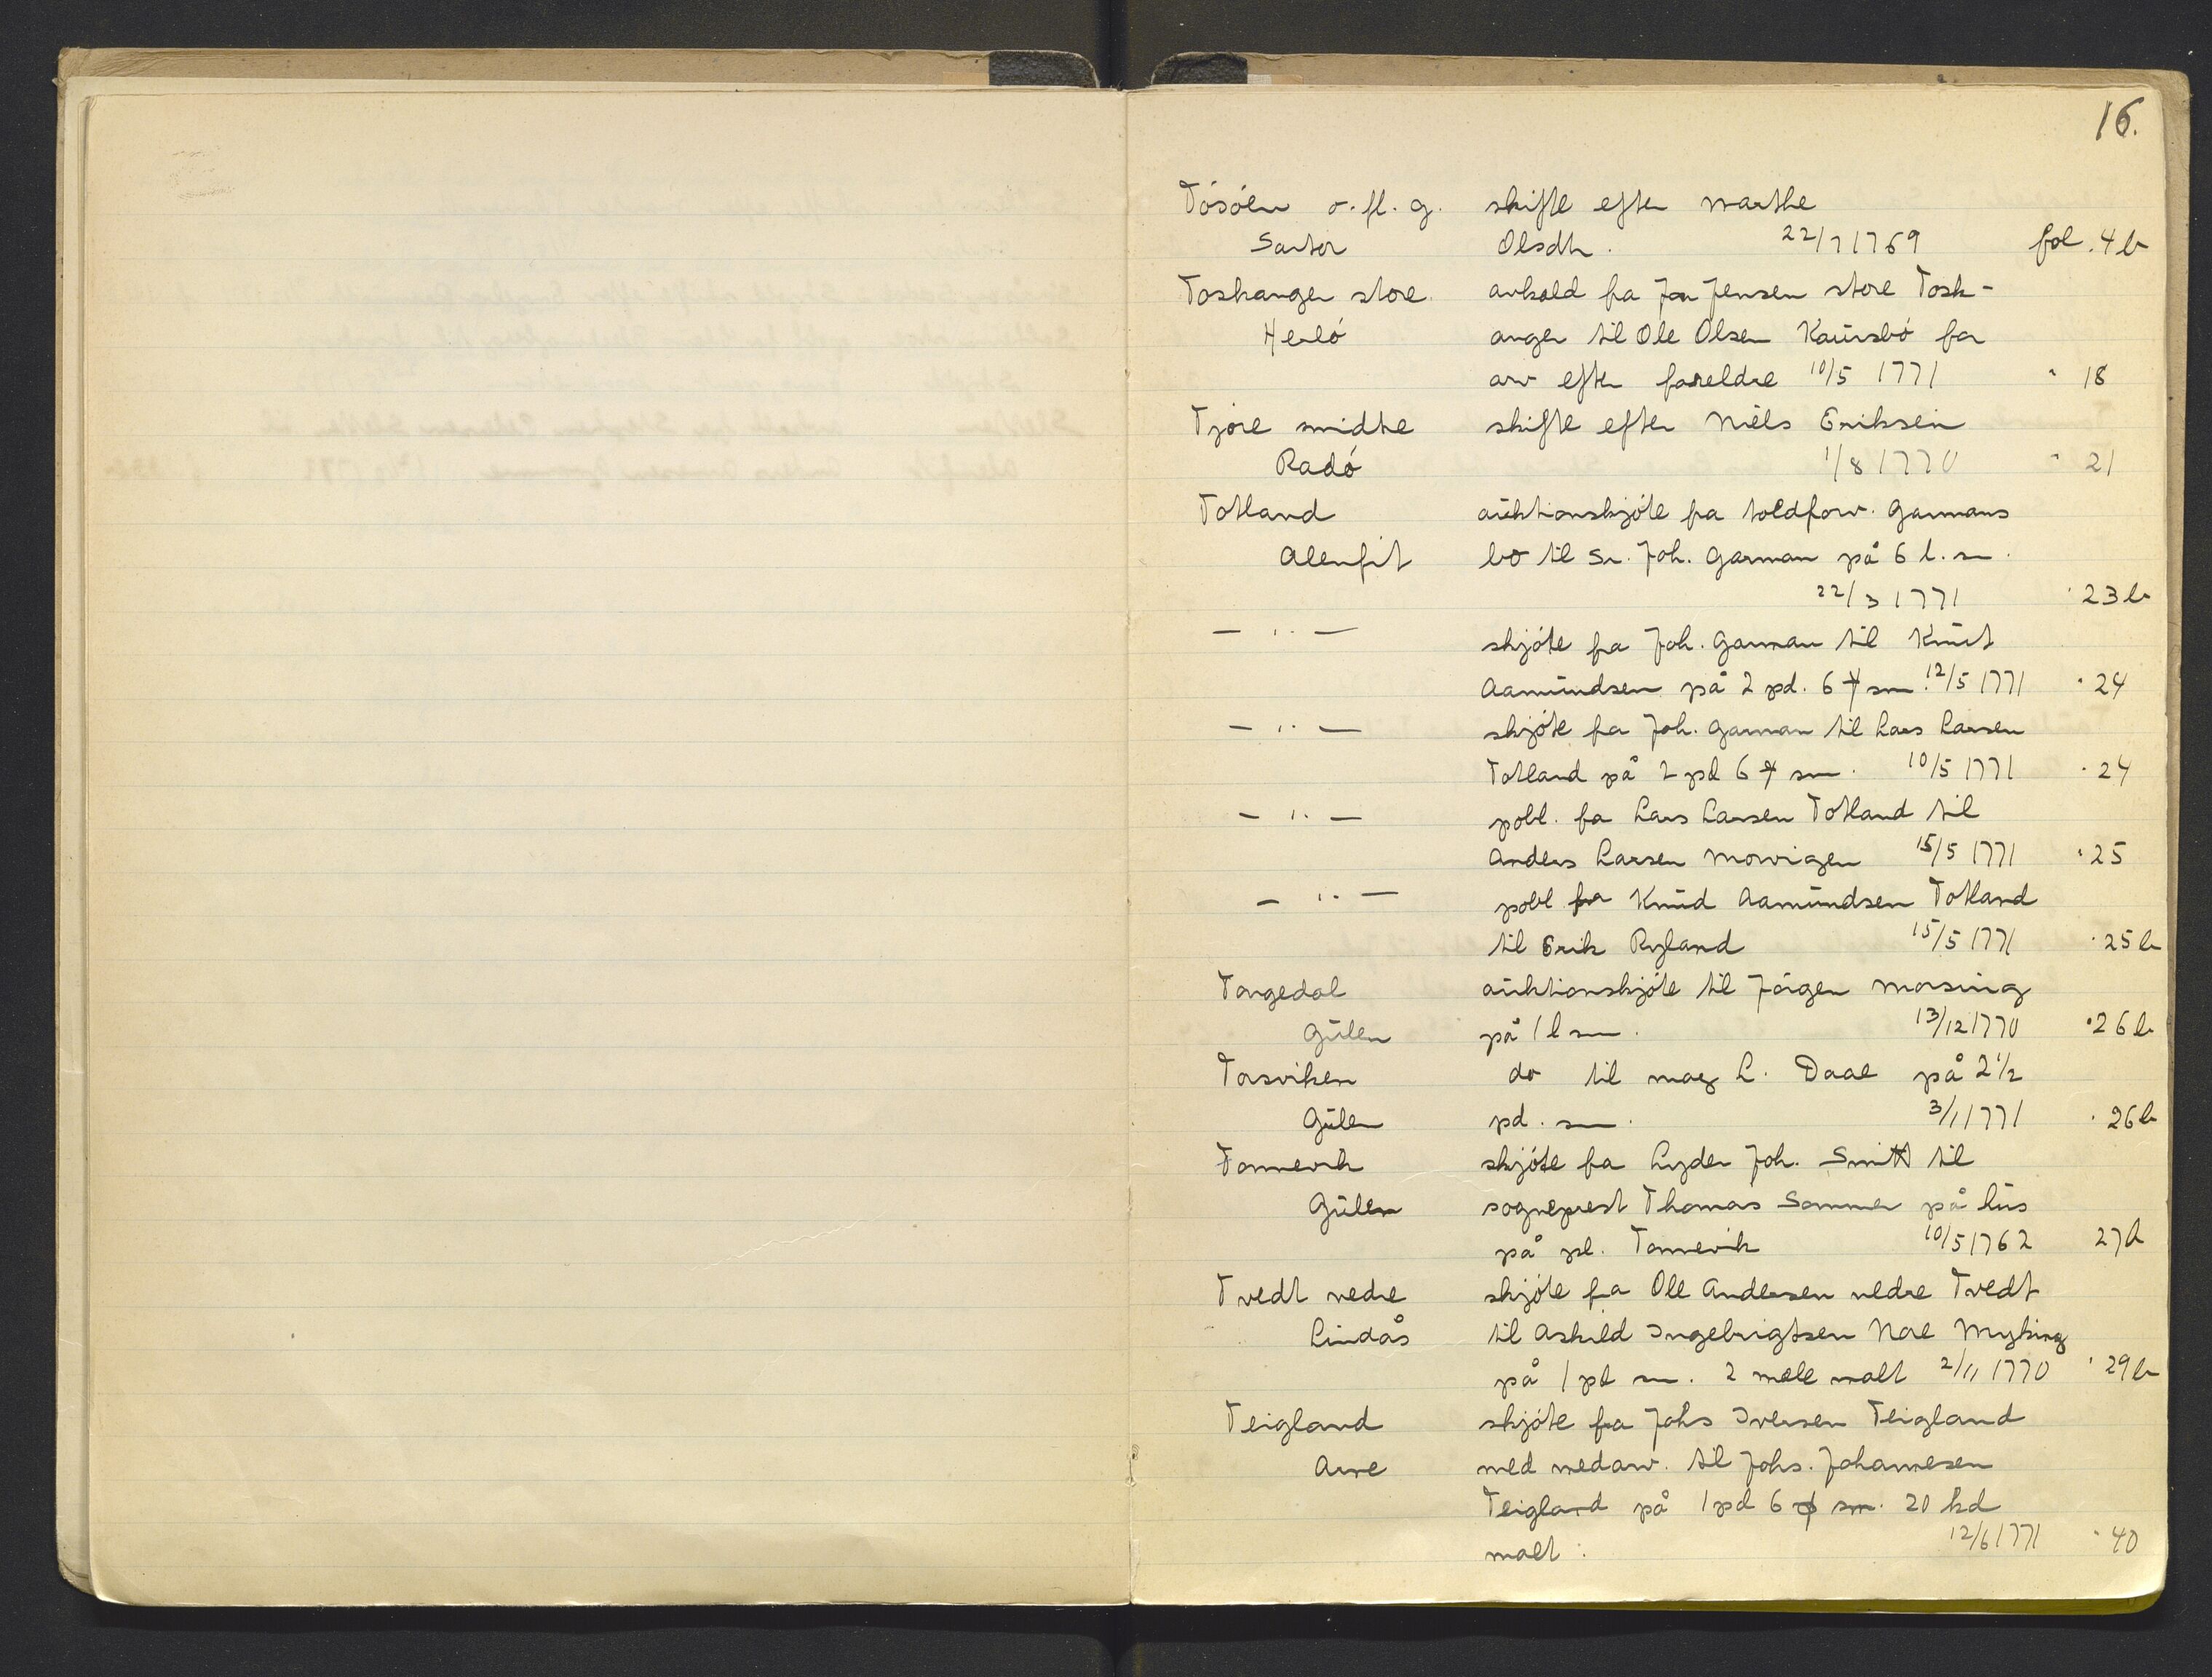 16.
Tösöen o. fl. g. skifte efter Marthe
Sartor Olsdtr. 22/7 1769 fol. 4 b
Toskanger store avkald fra Jon Jensen store Tosk-
Herlö anger til Ole Olsen Kaursbö for
arv efter foreldre 10/5 1771 " 18
Tjore midtre skifte efter Niels Eriksen
Radö 1/8 1770 " 21
Totland auktionskjöte fra toldforv. Garmans
Alenfit bo til Sr. Joh. Garman på 6 l. sm.
22/3 1771 " 23 b
— " — skjöte fra Joh. Garman til Knut
Aamundsen på 2 pd. 6 ℔ sm. 12/5 1771 " 24
— " — skjöte fra Joh. Garman til Lars Larsen
Totland på 2 pd 6 ℔ sm. 10/5 1771 " 24
— " — pobl. fra Lars Larsen Totland til
Anders Larsen Morvigen 15/5 1771 " 25
— " — pobl fra Knud Aamundsen Totland
til Erik Ryland 15/5 1771 " 25 b
Torgedal auktionskjöte til Jörgen Morsing
Gulen på 1 l sm. 13/12 1770 " 26 b
Torsviken do til mag L. Daae på 2 1/2
Gulen pd. sm. 3/1 1771 " 26 b
Tonnevik skjöte fra Lyder Joh. Smitt til
Gulen sogneprest Thomas Sommer på hus
på pl. Tonnevik 10/5 1762 27 b
Tvedt nedre skjöte fra Ole Andersen nedre Tvedt
Lindås til Askild Ingebrigtsen Nore Myking
på 1 pd sm. 2 mele malt 2/11 1770 " 29 b
Teigland skjöte fra Johs Iversen Teigland
Arne med medarv. til Johs. Johannesen
Teigland på 1 pd 6 ℔ sm. 20 kd
malt. 12/6 1771 " 40